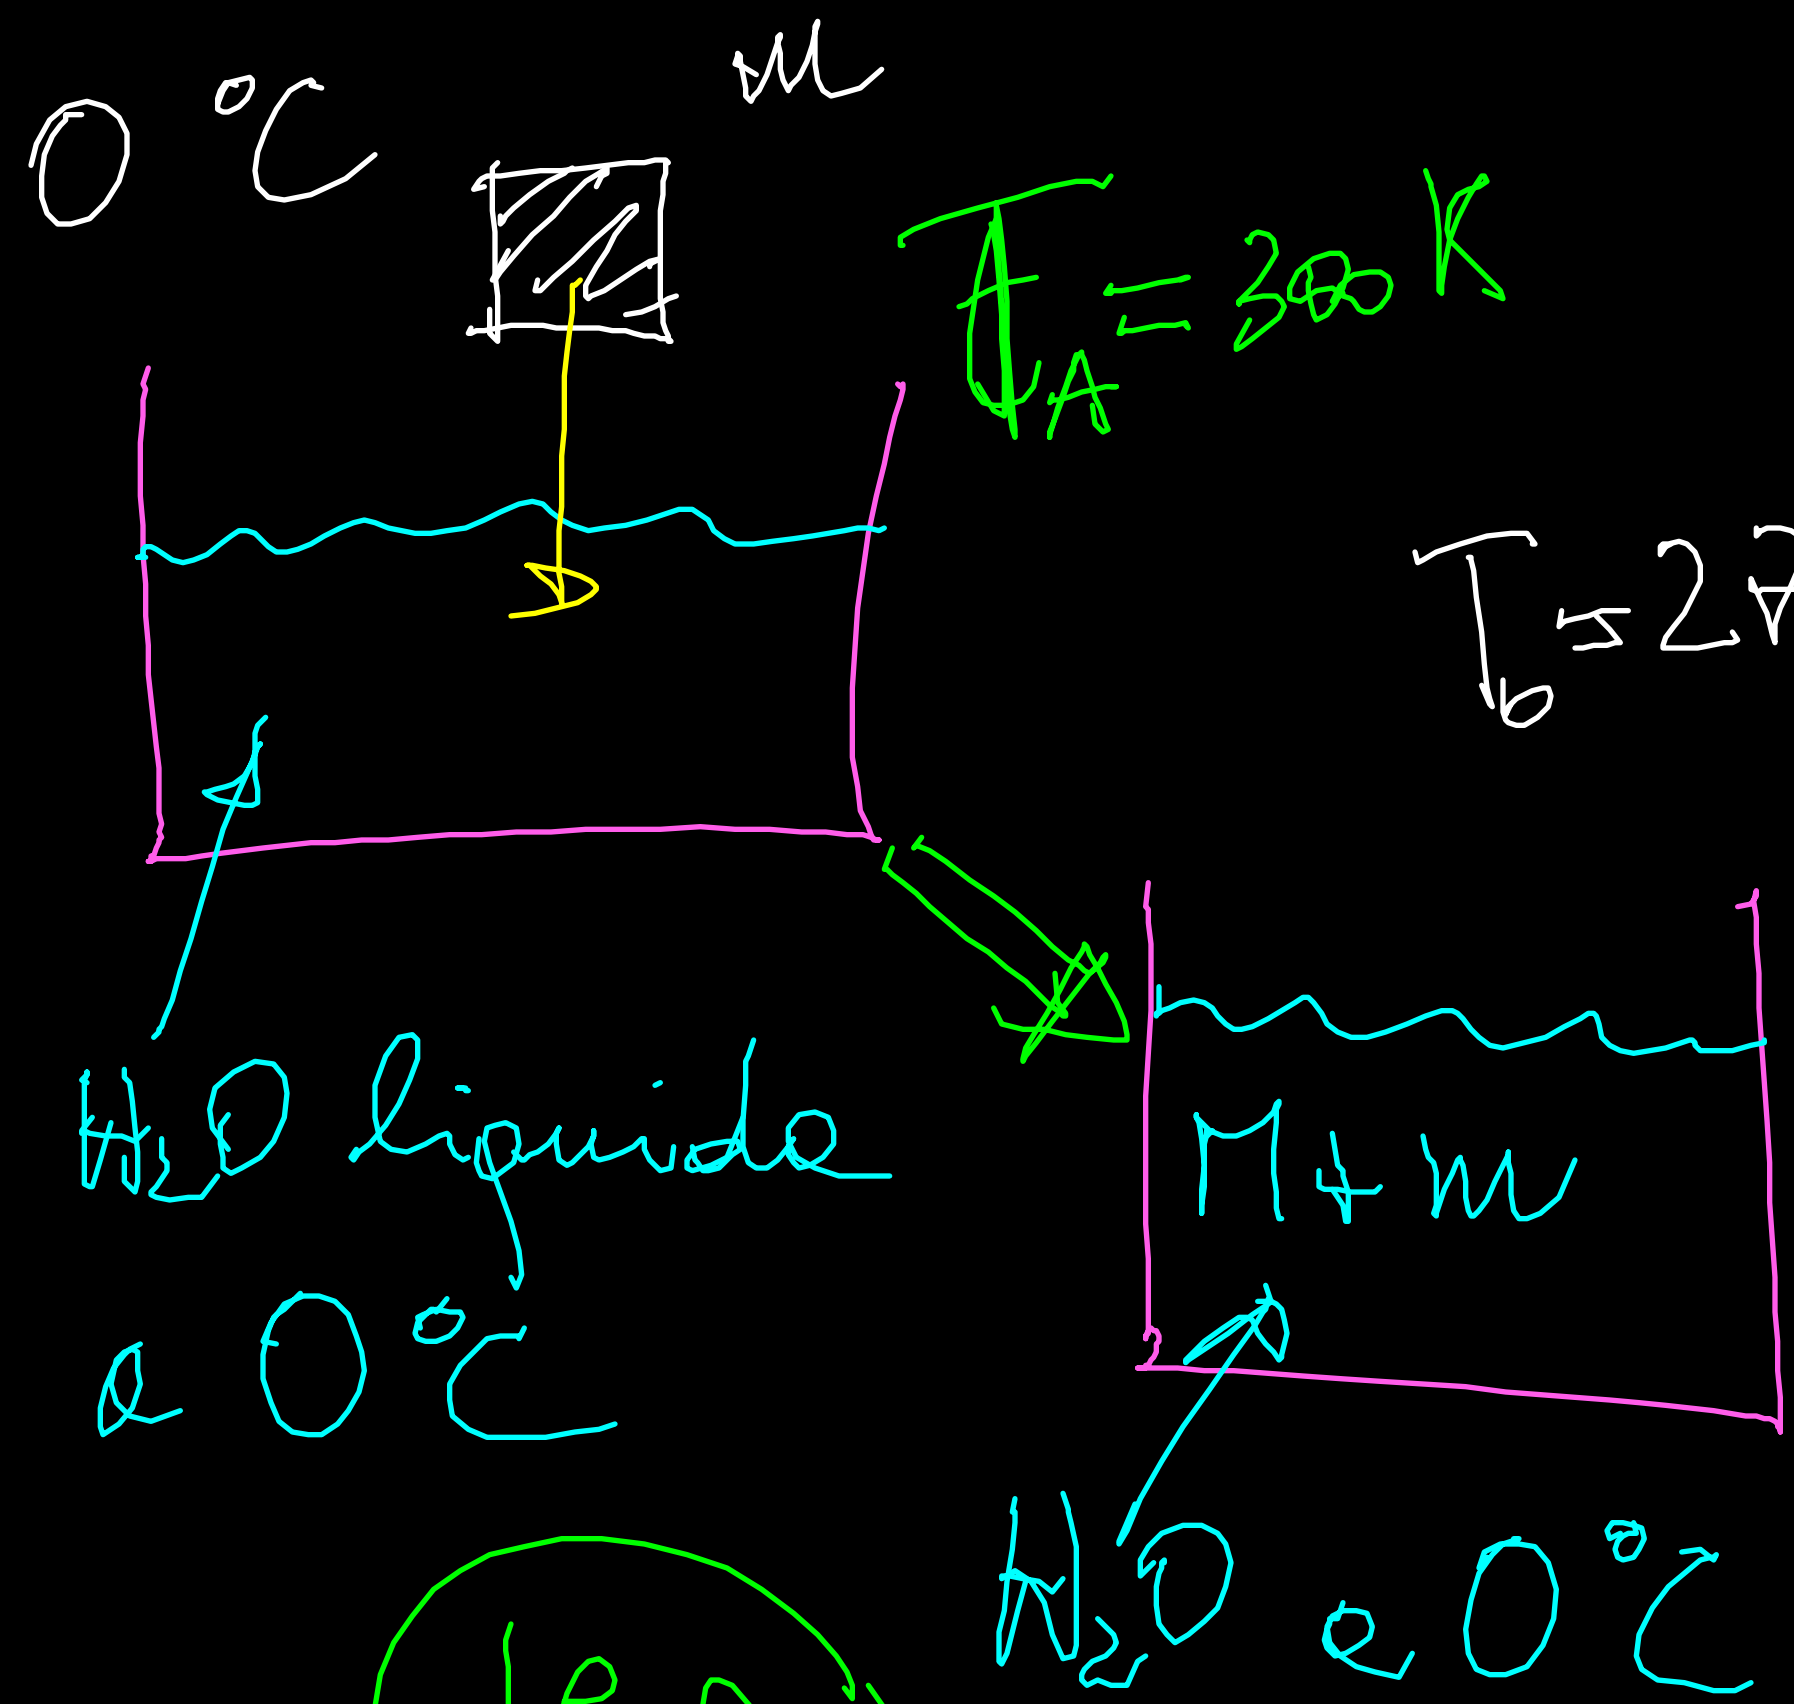 0 °C
m
T_A = 300 K
T_b = 27
H₂O liquide
a 0 °C
M + m
H₂O a 0 °C